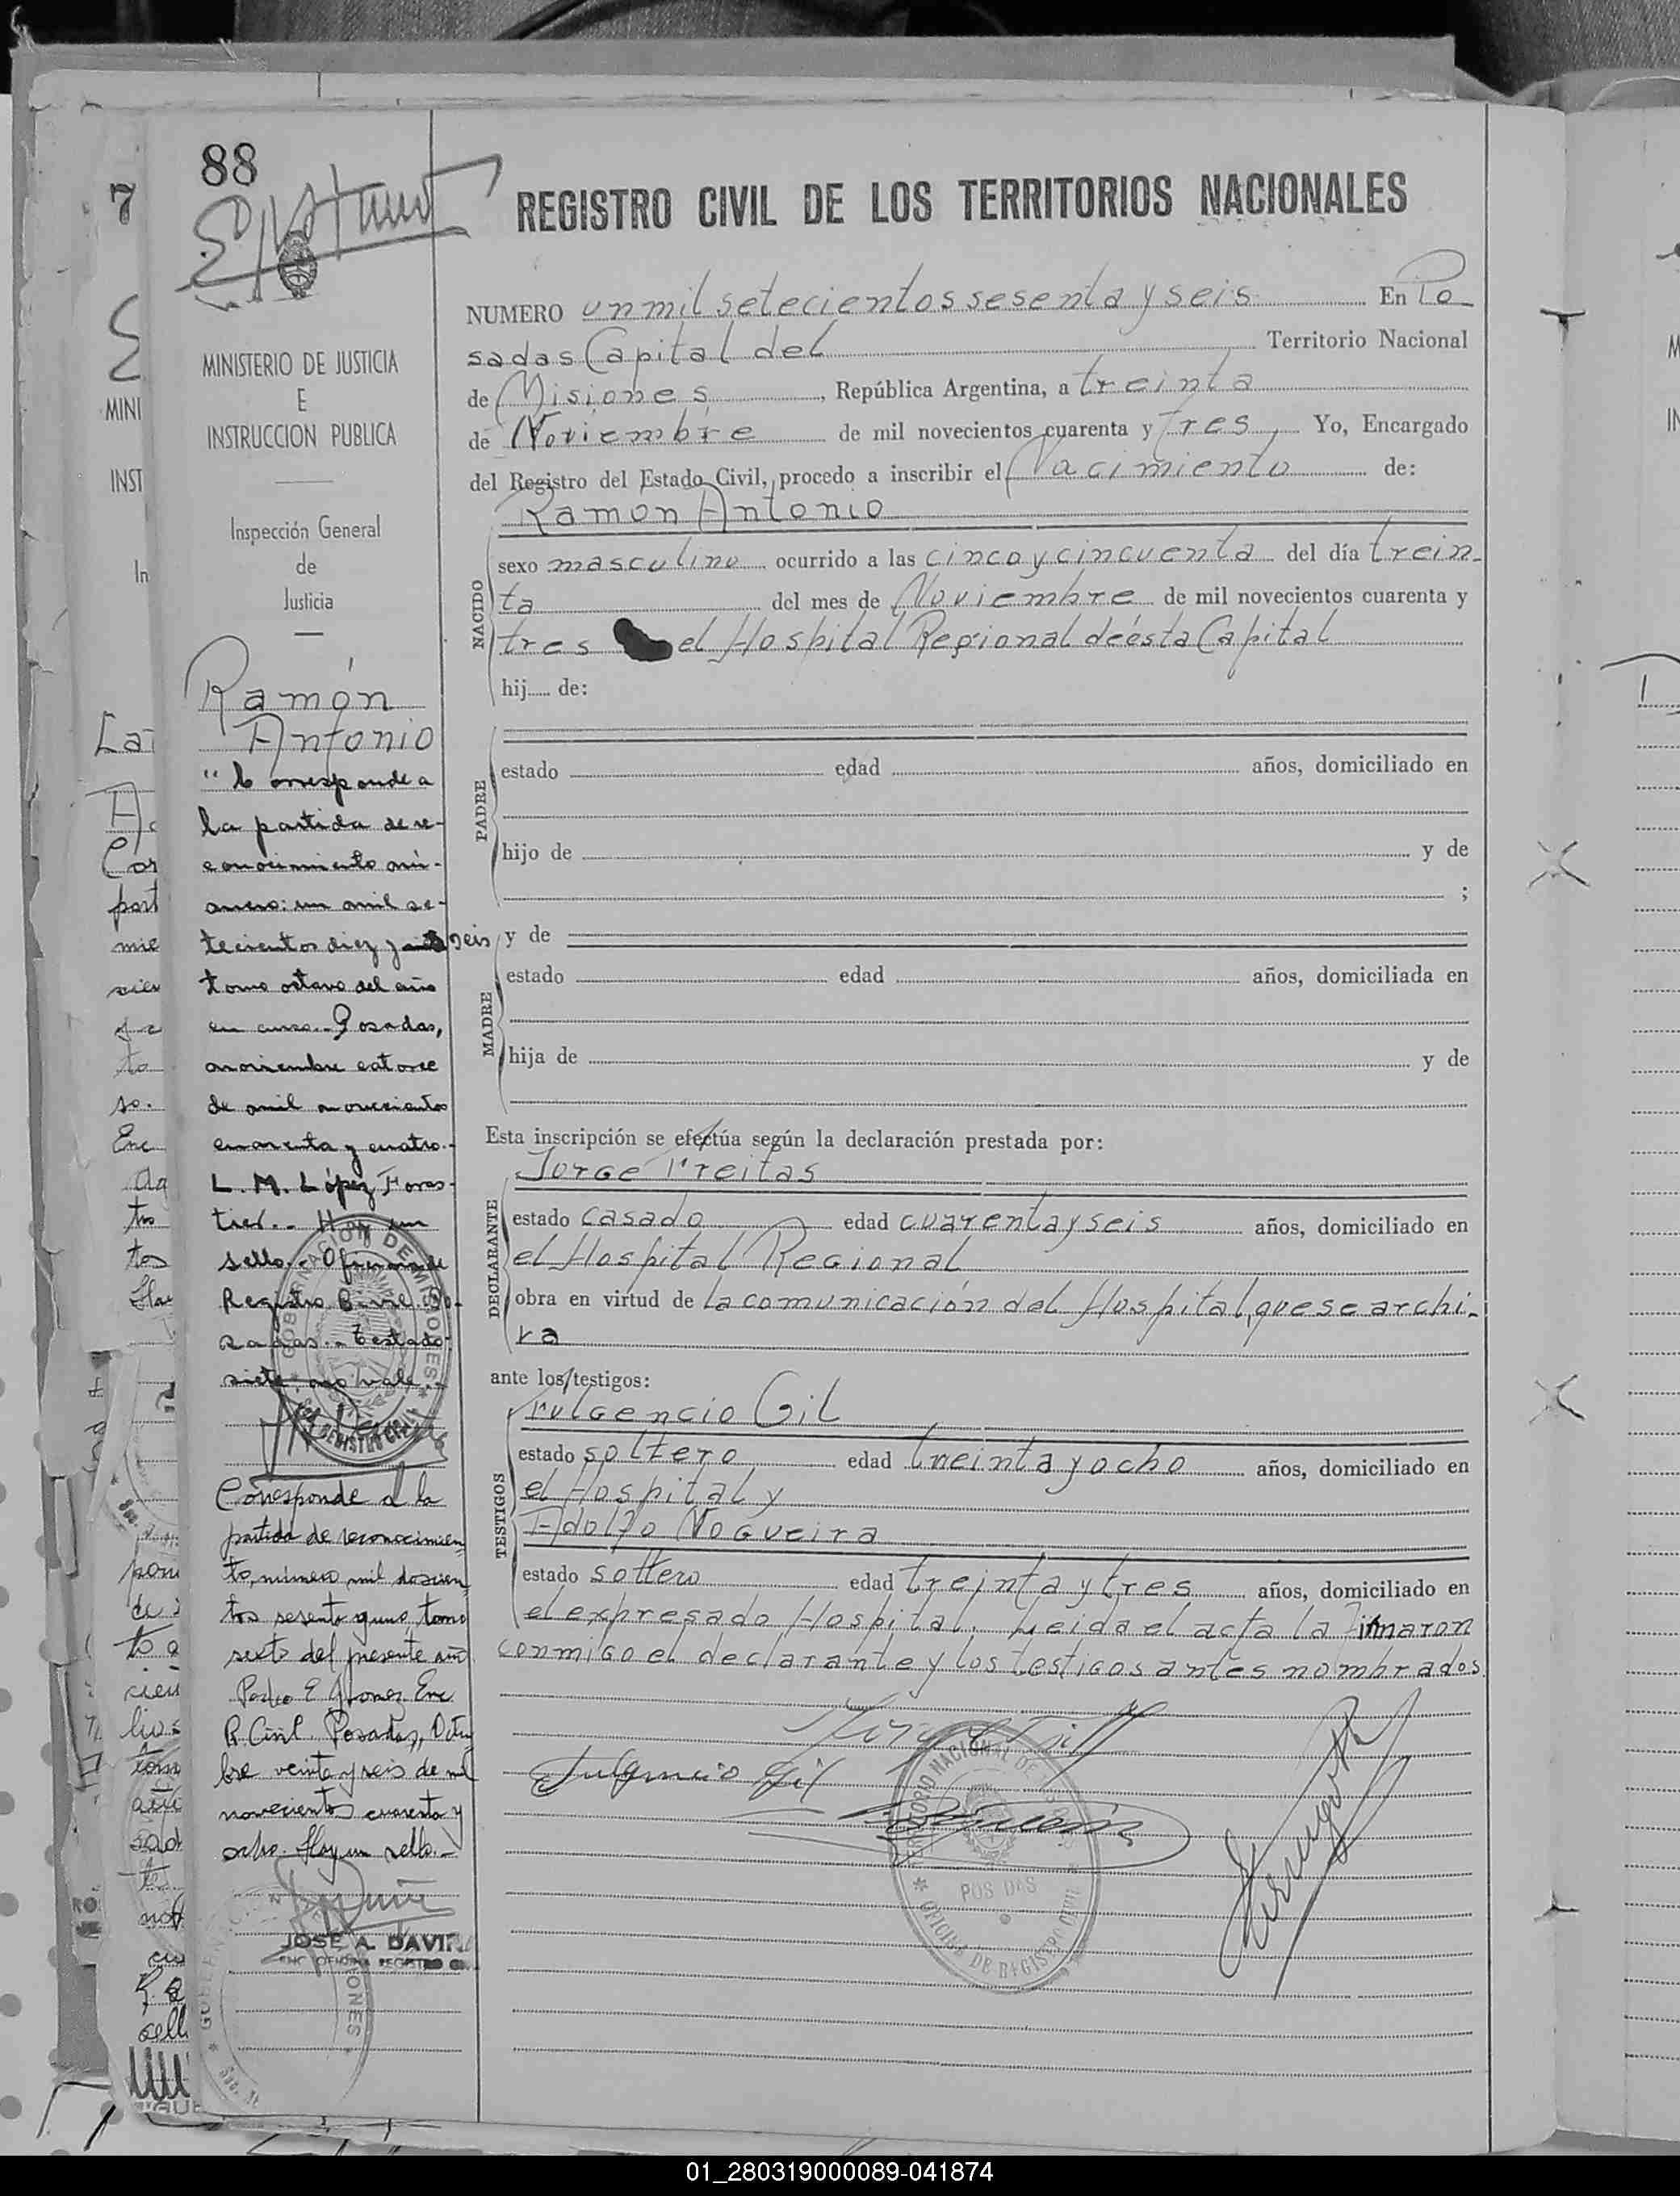 88
REGISTRO CIVIL DE LOS TERRITORIOS NACIONALES
NUMERO un mil setecientos sesenta y seis En Po
sadas Capital del Territorio Nacional
de Misiones, República Argentina, a treinta
de Noviembre de mil novecientos cuarenta y tres, Yo, Encargado
del Registro del Estado Civil, procedo a inscribir el Nacimiento de:
Ramon Antonio
NACIDO
sexo masculino ocurrido a las cinco y cincuenta del día trein-
ta del mes de Noviembre de mil novecientos cuarenta y
tres el Hospital Regional de ésta Capital
hij de:
PADRE
estado edad años, domiciliado en
hijo de y de
;
MADRE
y de
estado edad años, domiciliada en
hija de y de
Esta inscripción se efectúa según la declaración prestada por:
Jorge Freitas
DECLARANTE
estado casado edad cuarenta y seis años, domiciliado en
el Hospital Regional
obra en virtud de la comunicación del Hospital, que se archi-
va
ante los testigos:
Fulgencio Gil
TESTIGOS
estado soltero edad treinta y ocho años, domiciliado en
el Hospital y
Adolfo Nogueira
estado soltero edad treinta y tres años, domiciliado en
el expresado Hospital. Leida el acta la firmaron
conmigo el declarante y los testigos antes nombrados
Fulgencio Gil
POSADAS
OFICINA DE REGISTRO CIVIL
MINISTERIO DE JUSTICIA
E
INSTRUCCION PUBLICA
Inspección General
de
Justicia
Ramón
Antonio
"Corresponde a
la partida de re-
conocimiento nú-
mero: un mil se-
tecientos diez y seis
tomo octavo del año
en curso.- Posadas,
noviembre catorce
de mil novecientos
cuarenta y cuatro.-
L. M. López Fores-
tier.- Hay un
sello.- Oficina de
Registro Civil. Po-
sadas.- Testado:
siete, no vale.-
GOBERNACION DE MISIONES
Corresponde a la
partida de reconocimien
to, número mil doscien
tos sesenta y uno, tomo
sexto del presente año
Pedro E Gomez Enc
R. Civil. Posadas, Octu
bre veinte y seis de mil
novecientos cuarenta y
ocho. Hay un sello.-
JOSE A. DAVIÑA
ENC. OFICINA REGISTRO
01_280319000089-041874